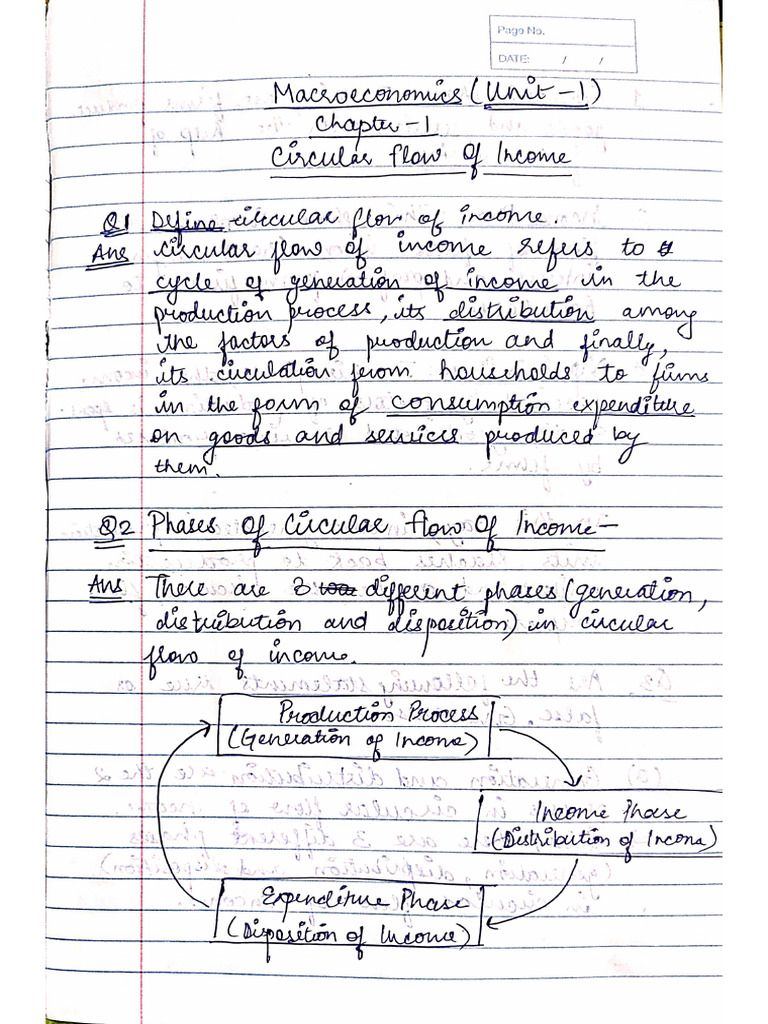 Page No.
DATE: / /
Macroeconomics (Unit-1)
Chapter-1
Circular flow of Income
Q1 Define circular flow of income.
Ans circular flow of income refers to
cycle of generation of income in the
production process, its distribution among
the factors of production and finally,
its circulation from households to firms
in the form of consumption expenditure
on goods and services produced by
them.
Q2 Phases Of Circular flow Of Income-
Ans There are 3 different phases (generation,
distribution and disposition) in circular
flow of income.
Production Process
(Generation of Income)
Income Phase
(Distribution of Income)
Expenditure Phase
(Disposition of Income)